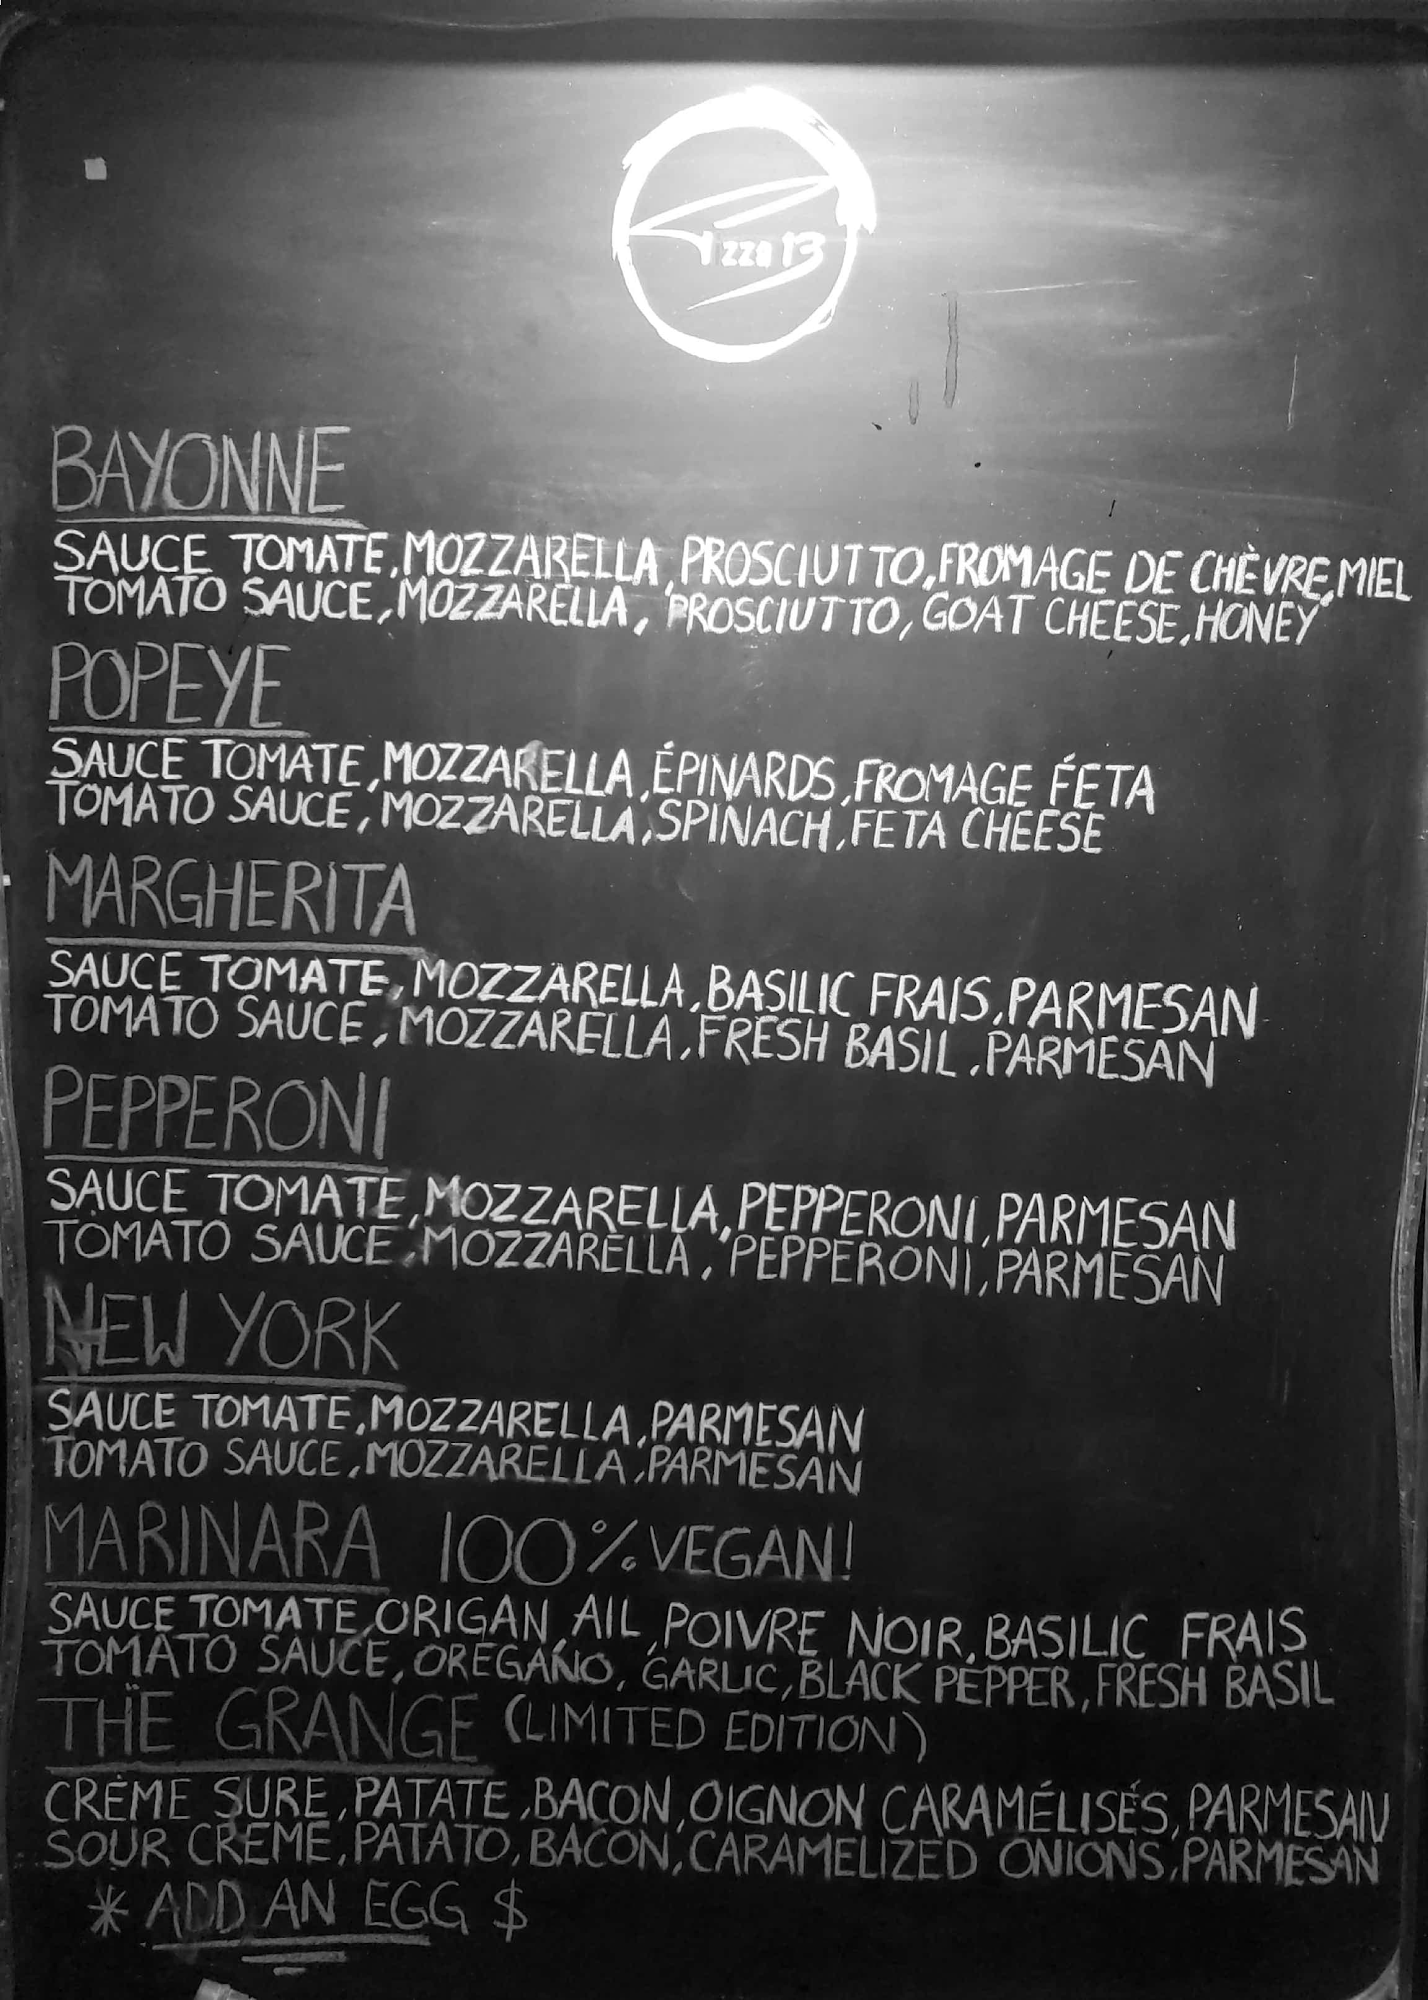 Pizza 13
BAYONNE
SAUCE TOMATE, MOZZARELLA, PROSCIUTTO, FROMAGE DE CHÈVRE, MIEL
TOMATO SAUCE, MOZZARELLA, PROSCIUTTO, GOAT CHEESE, HONEY
POPEYE
SAUCE TOMATE, MOZZARELLA, ÉPINARDS, FROMAGE FÉTA
TOMATO SAUCE, MOZZARELLA, SPINACH, FETA CHEESE
MARGHERITA
SAUCE TOMATE, MOZZARELLA, BASILIC FRAIS, PARMESAN
TOMATO SAUCE, MOZZARELLA, FRESH BASIL, PARMESAN
PEPPERONI
SAUCE TOMATE, MOZZARELLA, PEPPERONI, PARMESAN
TOMATO SAUCE, MOZZARELLA, PEPPERONI, PARMESAN
NEW YORK
SAUCE TOMATE, MOZZARELLA, PARMESAN
TOMATO SAUCE, MOZZARELLA, PARMESAN
MARINARA 100% VEGAN!
SAUCE TOMATE, ORIGAN, AIL, POIVRE NOIR, BASILIC FRAIS
TOMATO SAUCE, OREGANO, GARLIC, BLACK PEPPER, FRESH BASIL
THE GRANGE (LIMITED EDITION)
CRÈME SURE, PATATE, BACON, OIGNON CARAMÉLISÉS, PARMESAN
SOUR CREME, PATATO, BACON, CARAMELIZED ONIONS, PARMESAN
* ADD AN EGG $